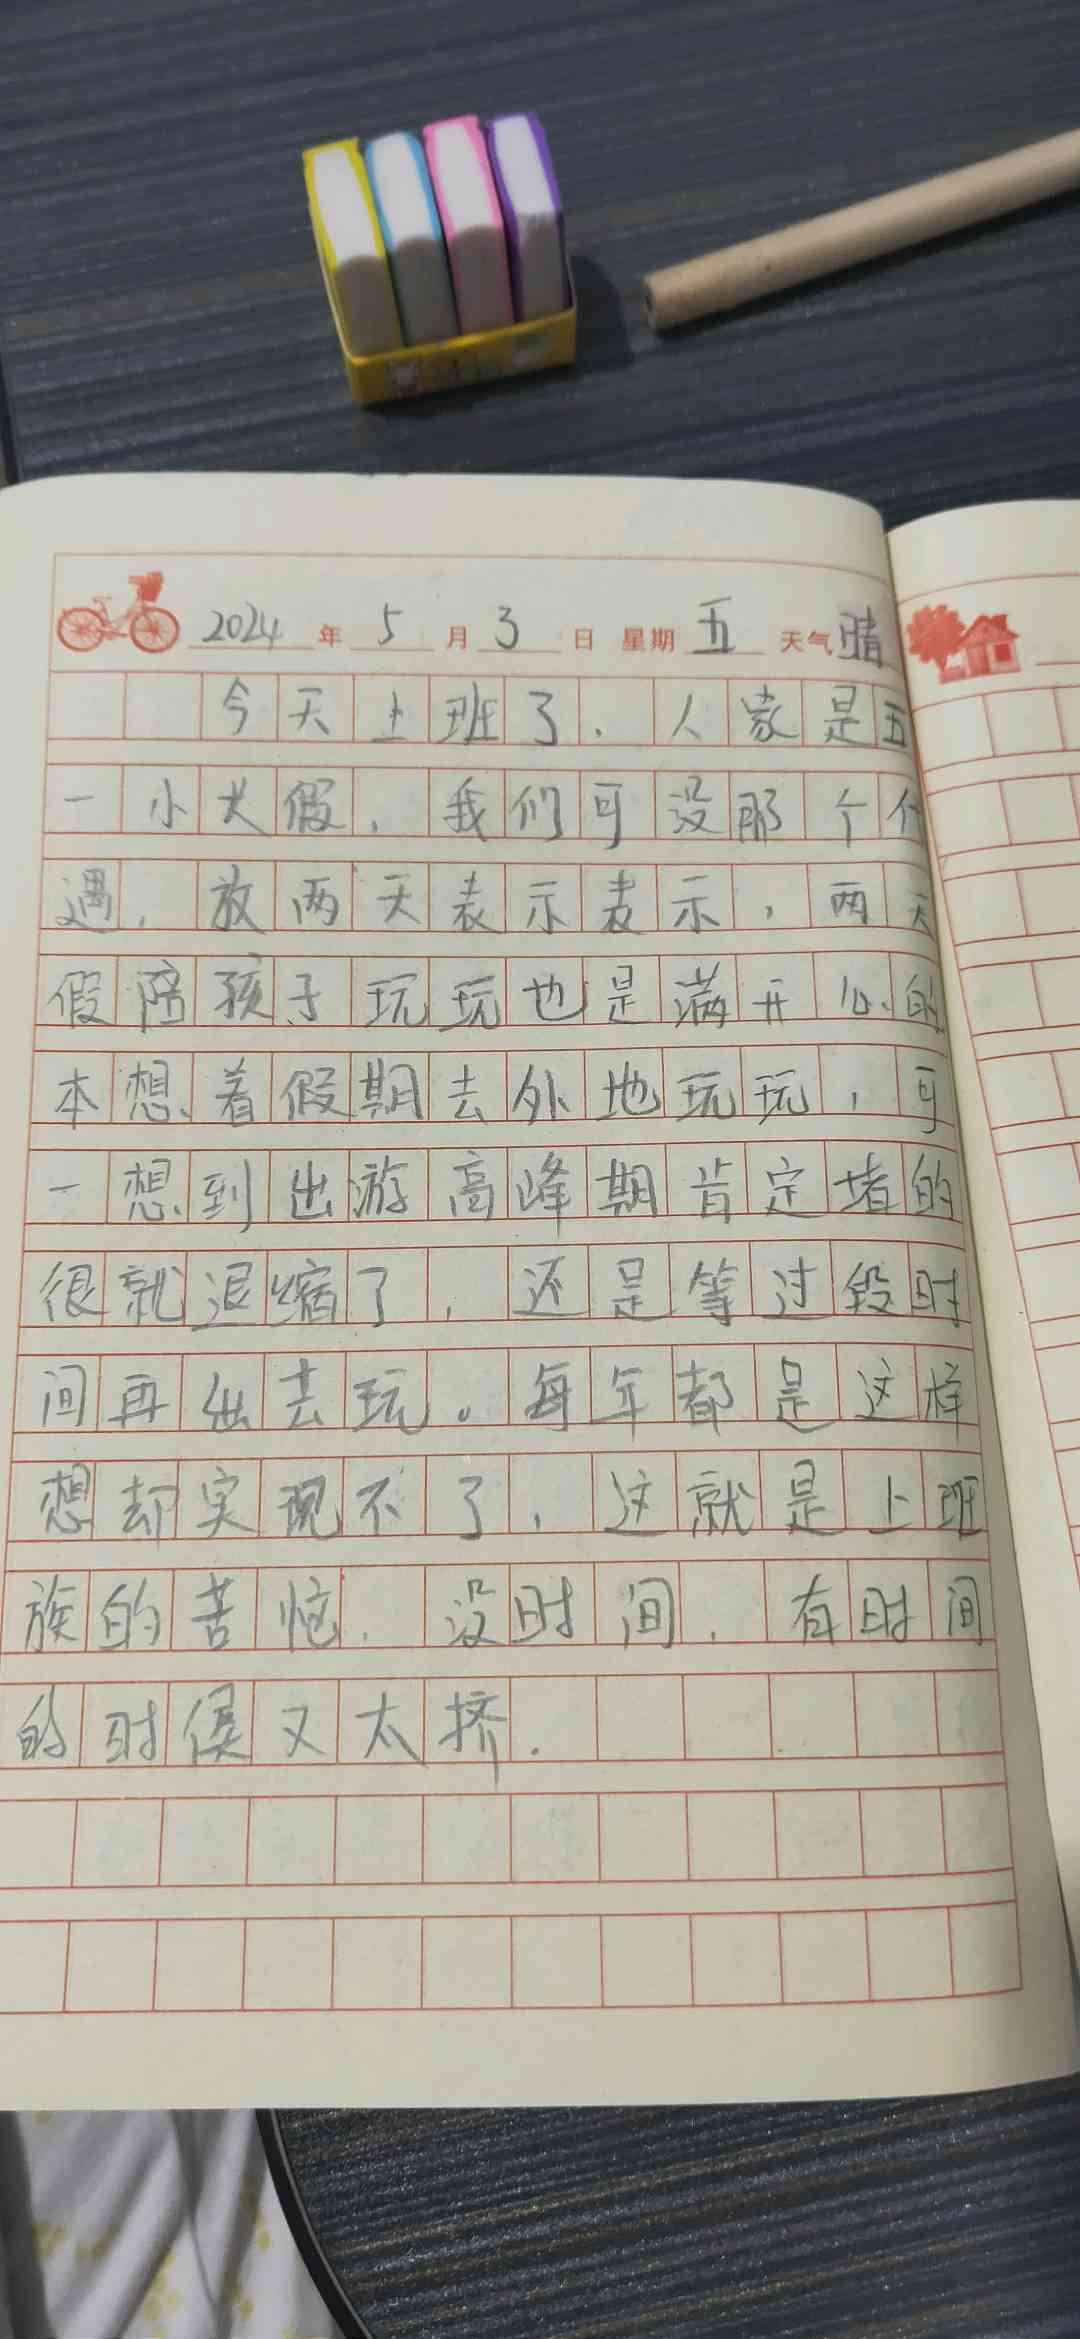 2024年5月3日 星期五 天气晴
今天上班了.人家是五
一小大假,我们可没那个
遇,放两天表示表示,两天
假陪孩子玩玩也是满开心的
本想着假期去外地玩玩,可
一想到出游高峰期肯定堵的
很就退缩了,还是等过段时
间再出去玩。每年都是这样
想却实现不了,这就是上班
族的苦恼.没时间.有时间
的时侯又太挤.